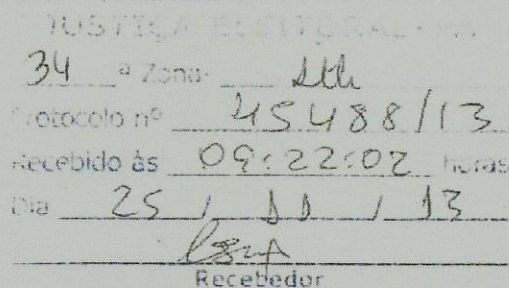 JUSTIÇA ELEITORAL - PA
34 ª Zona-
Protocolo nº 45488/13
Recebido às 09:22:02 horas
Dia 25 / 11 / 13
Recebedor